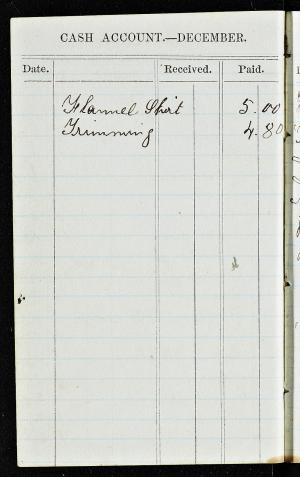 CASH ACCOUNT.—DECEMBER.
Date. Received. Paid.
Flannel Shirt 5.00
Trimming 4.80